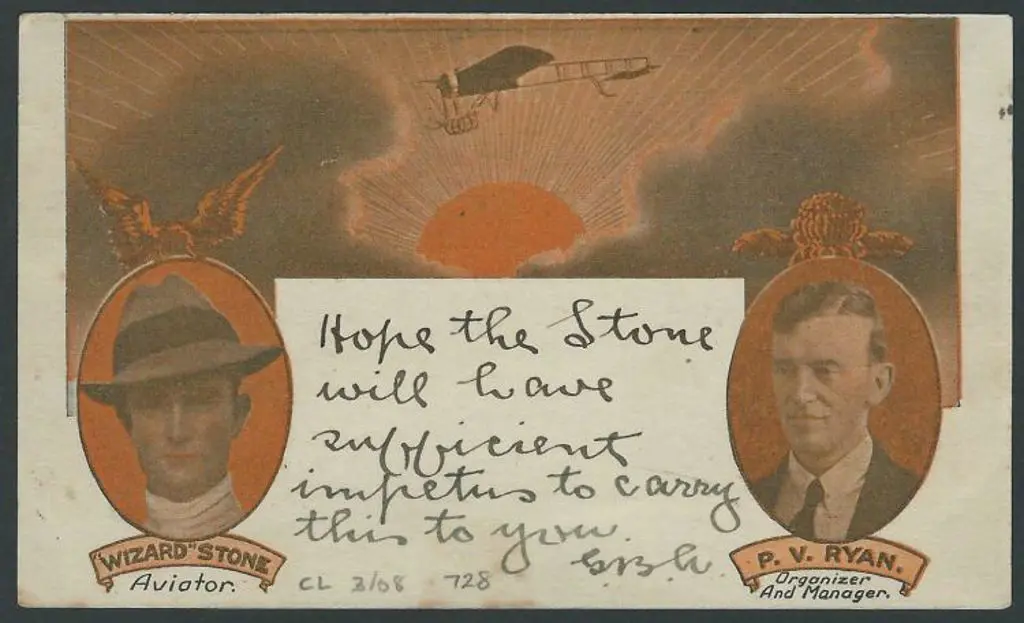 Hope the Stone
will have
sufficient
impetus to carry
this to you.
"WIZARD" STONE
Aviator.
CL 3/08 728
P. V. RYAN.
Organizer
And Manager.